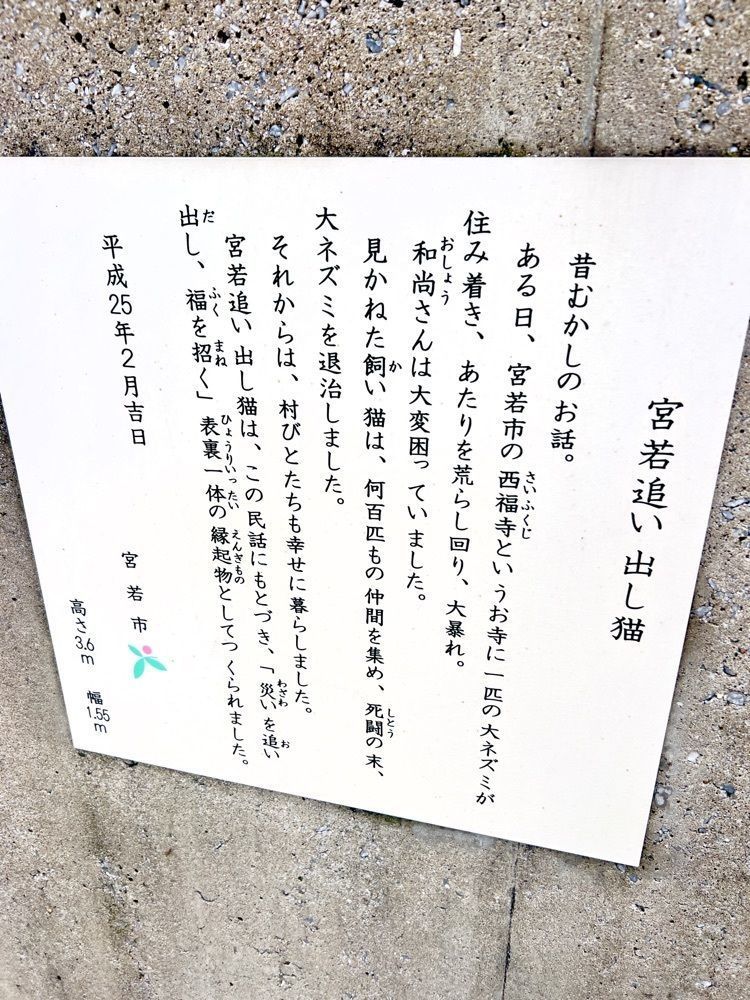 宮若追い出し猫
昔むかしのお話。
ある日、宮若市の西福寺というお寺に一匹の大ネズミが
さいふくじ
住み着き、あたりを荒らし回り、大暴れ。
和尚さんは大変困っていました。
おしょう
見かねた飼い猫は、何百匹もの仲間を集め、死闘の末、
か
しとう
大ネズミを退治しました。
それからは、村びとたちも幸せに暮らしました。
宮若追い出し猫は、この民話にもとづき、「災いを追い
わざわ
お
出し、福を招く」表裏一体の縁起物としてつくられました。
だ
ふく
まね
ひょうりいったい
えんぎもの
平成25年2月吉日
宮若市
高さ3.6m 幅1.55m